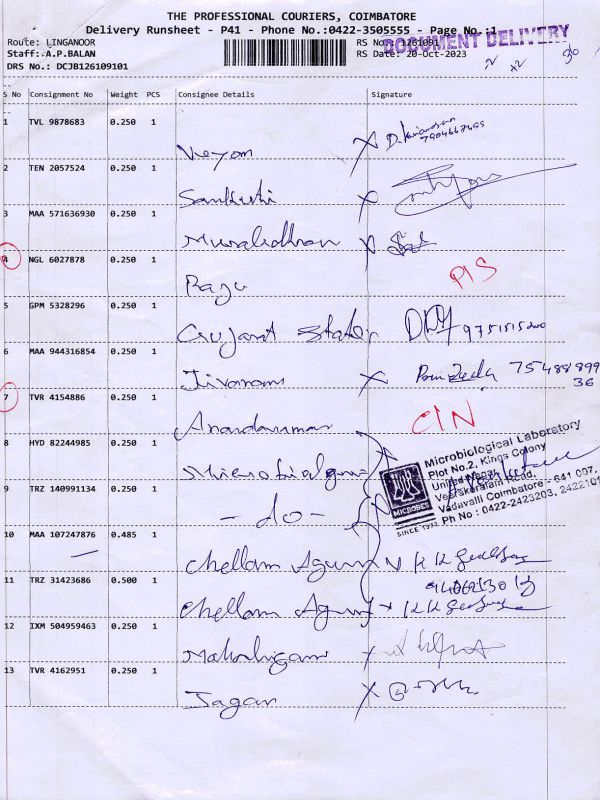 THE PROFESSIONAL COURIERS, COIMBATORE
Delivery Runsheet - P41 - Phone No.:0422-3505555 - Page No.:1
Route: LINGANOOR
RS No.: 1261091
DOCUMENT DELIVERY
Staff:.A.P.BALAN
RS Date: 20-Oct-2023
DRS No.: DCJB126109101
S No Consignment No Weight PCS Consignee Details Signature
1 TVL 9878683 0.250 1
2 TEN 2057524 0.250 1 Sankuti X
3 MAA 571636930 0.250 1 Muralidharan X
4 NGL 6027878 0.250 1 Raju PIS
5 GPM 5328296 0.250 1 Gujarat State
6 MAA 944316854 0.250 1 Jivanam X 75488899
36
7 TVR 4154886 0.250 1 Anandkumar CIN
8 HYD 82244985 0.250 1
Microbiological Laboratory
Plot No.2, Kings Colony
United Nagar,
Veerakeralam Road,
Vadavalli Coimbatore - 641 007.
Ph No : 0422-2423203, 2422101
MICROBES
SINCE 1977
9 TRZ 140991134 0.250 1 - do -
10 MAA 107247876 0.485 1 Chellam Agency
11 TRZ 31423686 0.500 1 Chellam Agency
12 IXM 504959463 0.250 1 Mahalingam X
13 TVR 4162951 0.250 1 Jagan X